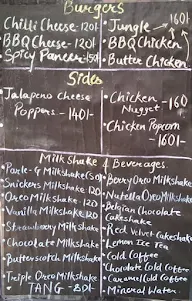 Burgers
Chilli Cheese-120/-
BBQ Cheese-120/-
Spicy Paneer-150/-
Jungle
160/-
BBQ Chicken
Butter Chicken
Sides
Jalapeno Cheese
Poppers - 140/-
Chicken
Nugget -160
Chicken Popcorn
160/-
Milk Shake & Beverages
Parle-G Milkshake
Snickers Milkshake-120
Oreo Milkshake-120
Vanilla Milkshake-120
Strawberry Milkshake
Chocolate Milkshake
Butterscotch Milkshake
Triple Oreo Milkshake
TANG - 80/-
Berry Oreo Milkshake
Nutella Oreo Milkshake
Belgian Chocolate
Cakeshake
Red Velvet Cakeshake
Lemon Ice Tea
Cold Coffee
Chocolate Cold Coffee
Caramel Cold Coffee
Mineral Water